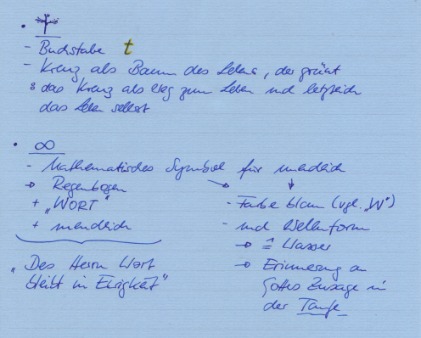 - Buchstabe t
- Kreuz als Baum des Lebens, der grünt
das Kreuz als Weg zum Leben und letztlich
das Leben selbst
∞
- Mathematisches Symbol für unendlich
→ Regenbogen
+ "WORT"
+ unendlich
"Des Herrn Wort
bleibt in Ewigkeit"
- Farbe blau (vgl. "W")
- und Wellenform
→ ≙ Wasser
→ Erinnerung an
Gottes Zusage in
der Taufe